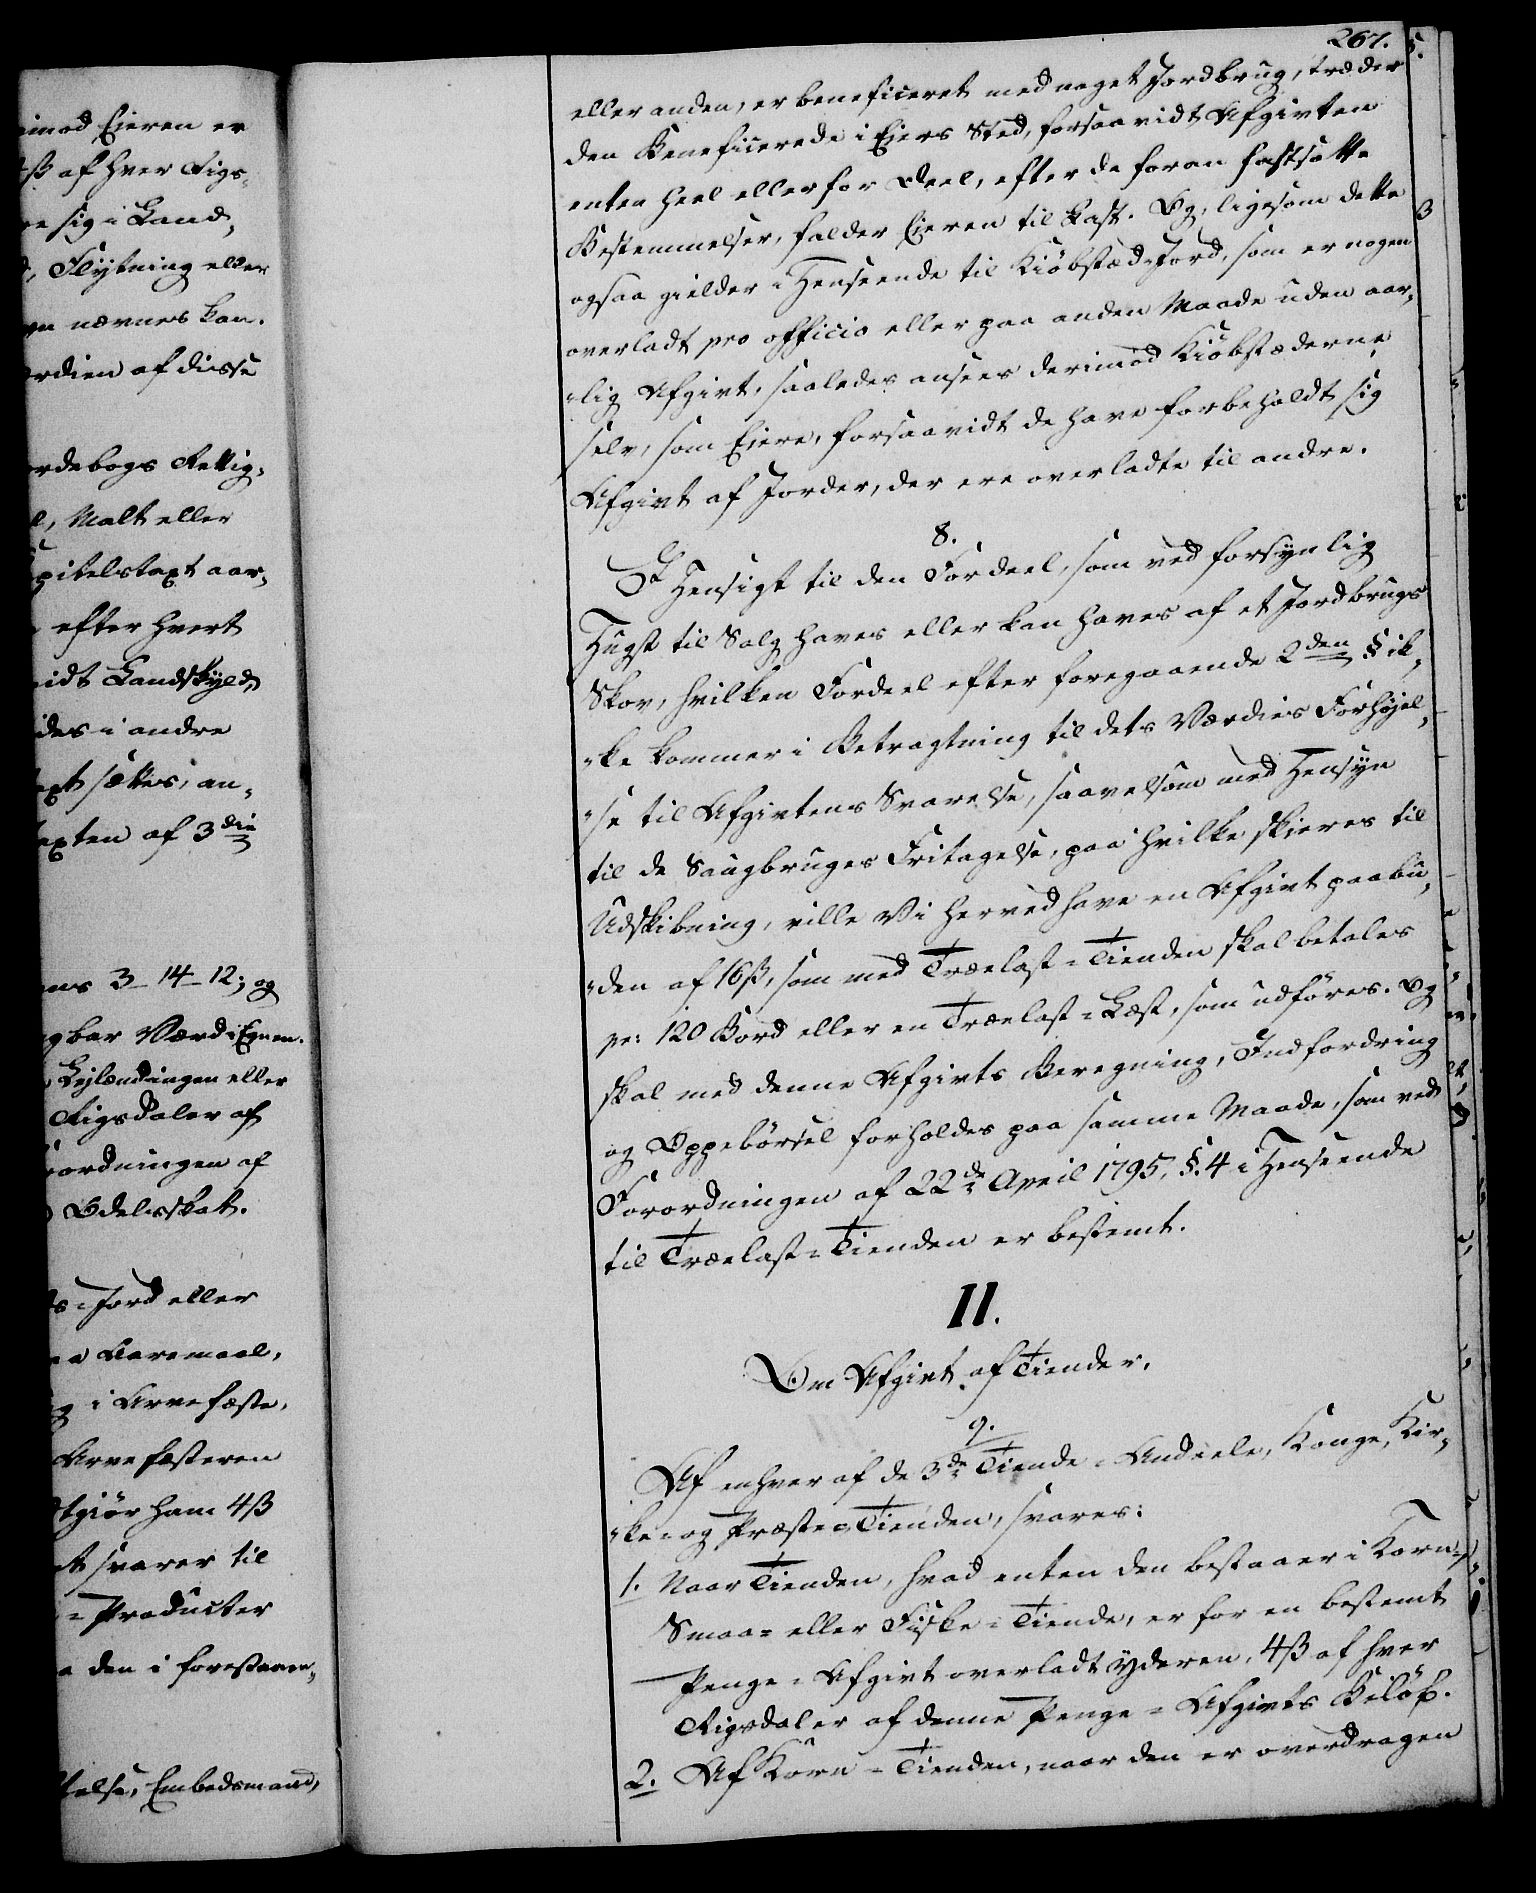 imod Ejeren er
4ß af hver Rigs-
re sig i Land-
, Flytning eller
vn nævnes kan.
ærdien af disse
ordebogs Rettig-
l, Malt eller
apitelstaxt aar-
efter hvert
vidt Landskyld,
ides i andre
axt sættes, an-
axten af 3die
ens 3_14_12; og
gbar Værd i Egnen.
Lejlændingen eller
Rigsdaler af
rordningen af
Odelsskat.
s=Jord eller
aa Aaremaal,
g i Arvefæste,
Arvefæsteren
tgiör ham 4ß
et svarer til
=Producter
a den i forestaaen-
telse, Embedsmand,
267.
eller anden, er beneficeret med noget Jordbrug, træder
den Beneficerede i Ejers Sted, forsaavidt Afgivten
enten heel eller for Deel, efter de foran fastsatte
Bestemmelser, falder Ejeren til Last. Og, ligesom dette
ogsaa gielder i Henseende til Kiöbstæd=Jord, som er nogen
overladt pro officio eller paa anden Maade uden aar-
lig Afgivt, saaledes ansees derimod Kiöbstæderne
selv, som Ejere, forsaavidt de have forbeholdt sig
Afgivt af Jorder, der ere overladte til andre.
8.
I Hensigt til den Fordeel, som ved forsynlig
Hugst til Salg haves eller kan haves af et Jordbrugs
Skov, hvilken Fordeel efter foregaaende 2den § ik-
ke kommer i Betragtning til dets Værdies Forhöjel-
se til Afgivtens Svarelse, saavelsom med Hensyn
til de Saugbruges Fritagelse, paa hvilke skieres til
Udskibning, ville Vi herved have en Afgivt paabu-
den af 16ß, som med Trælast=Tienden skal betales
pr: 120 Bord eller en Trælast=Læst, som udföres. Og
skal med denne Afgivts Beregning, Indfordring
og Oppebörsel forholdes paa samme Maade, som ved
Forordningen af 22de April 1795, §.4 i Henseende
til Trælast=Tienden er bestemt.
II.
Om Afgivt af Tiender.
9.
Af enhver af de 3de Tiende=Andeele, Konge, Kir-
ke= og Præste=Tienden, svares:
1. Naar Tienden, hvad enten den bestaaer i Korn=
Smaa= eller Fiske=Tiende, er for en bestemt
Penge=Afgivt overladt Yderen, 4ß af hver
Rigsdaler af denne Penge=Afgivts Belöb.
2. Af Korn=Tienden, naar den er overdragen